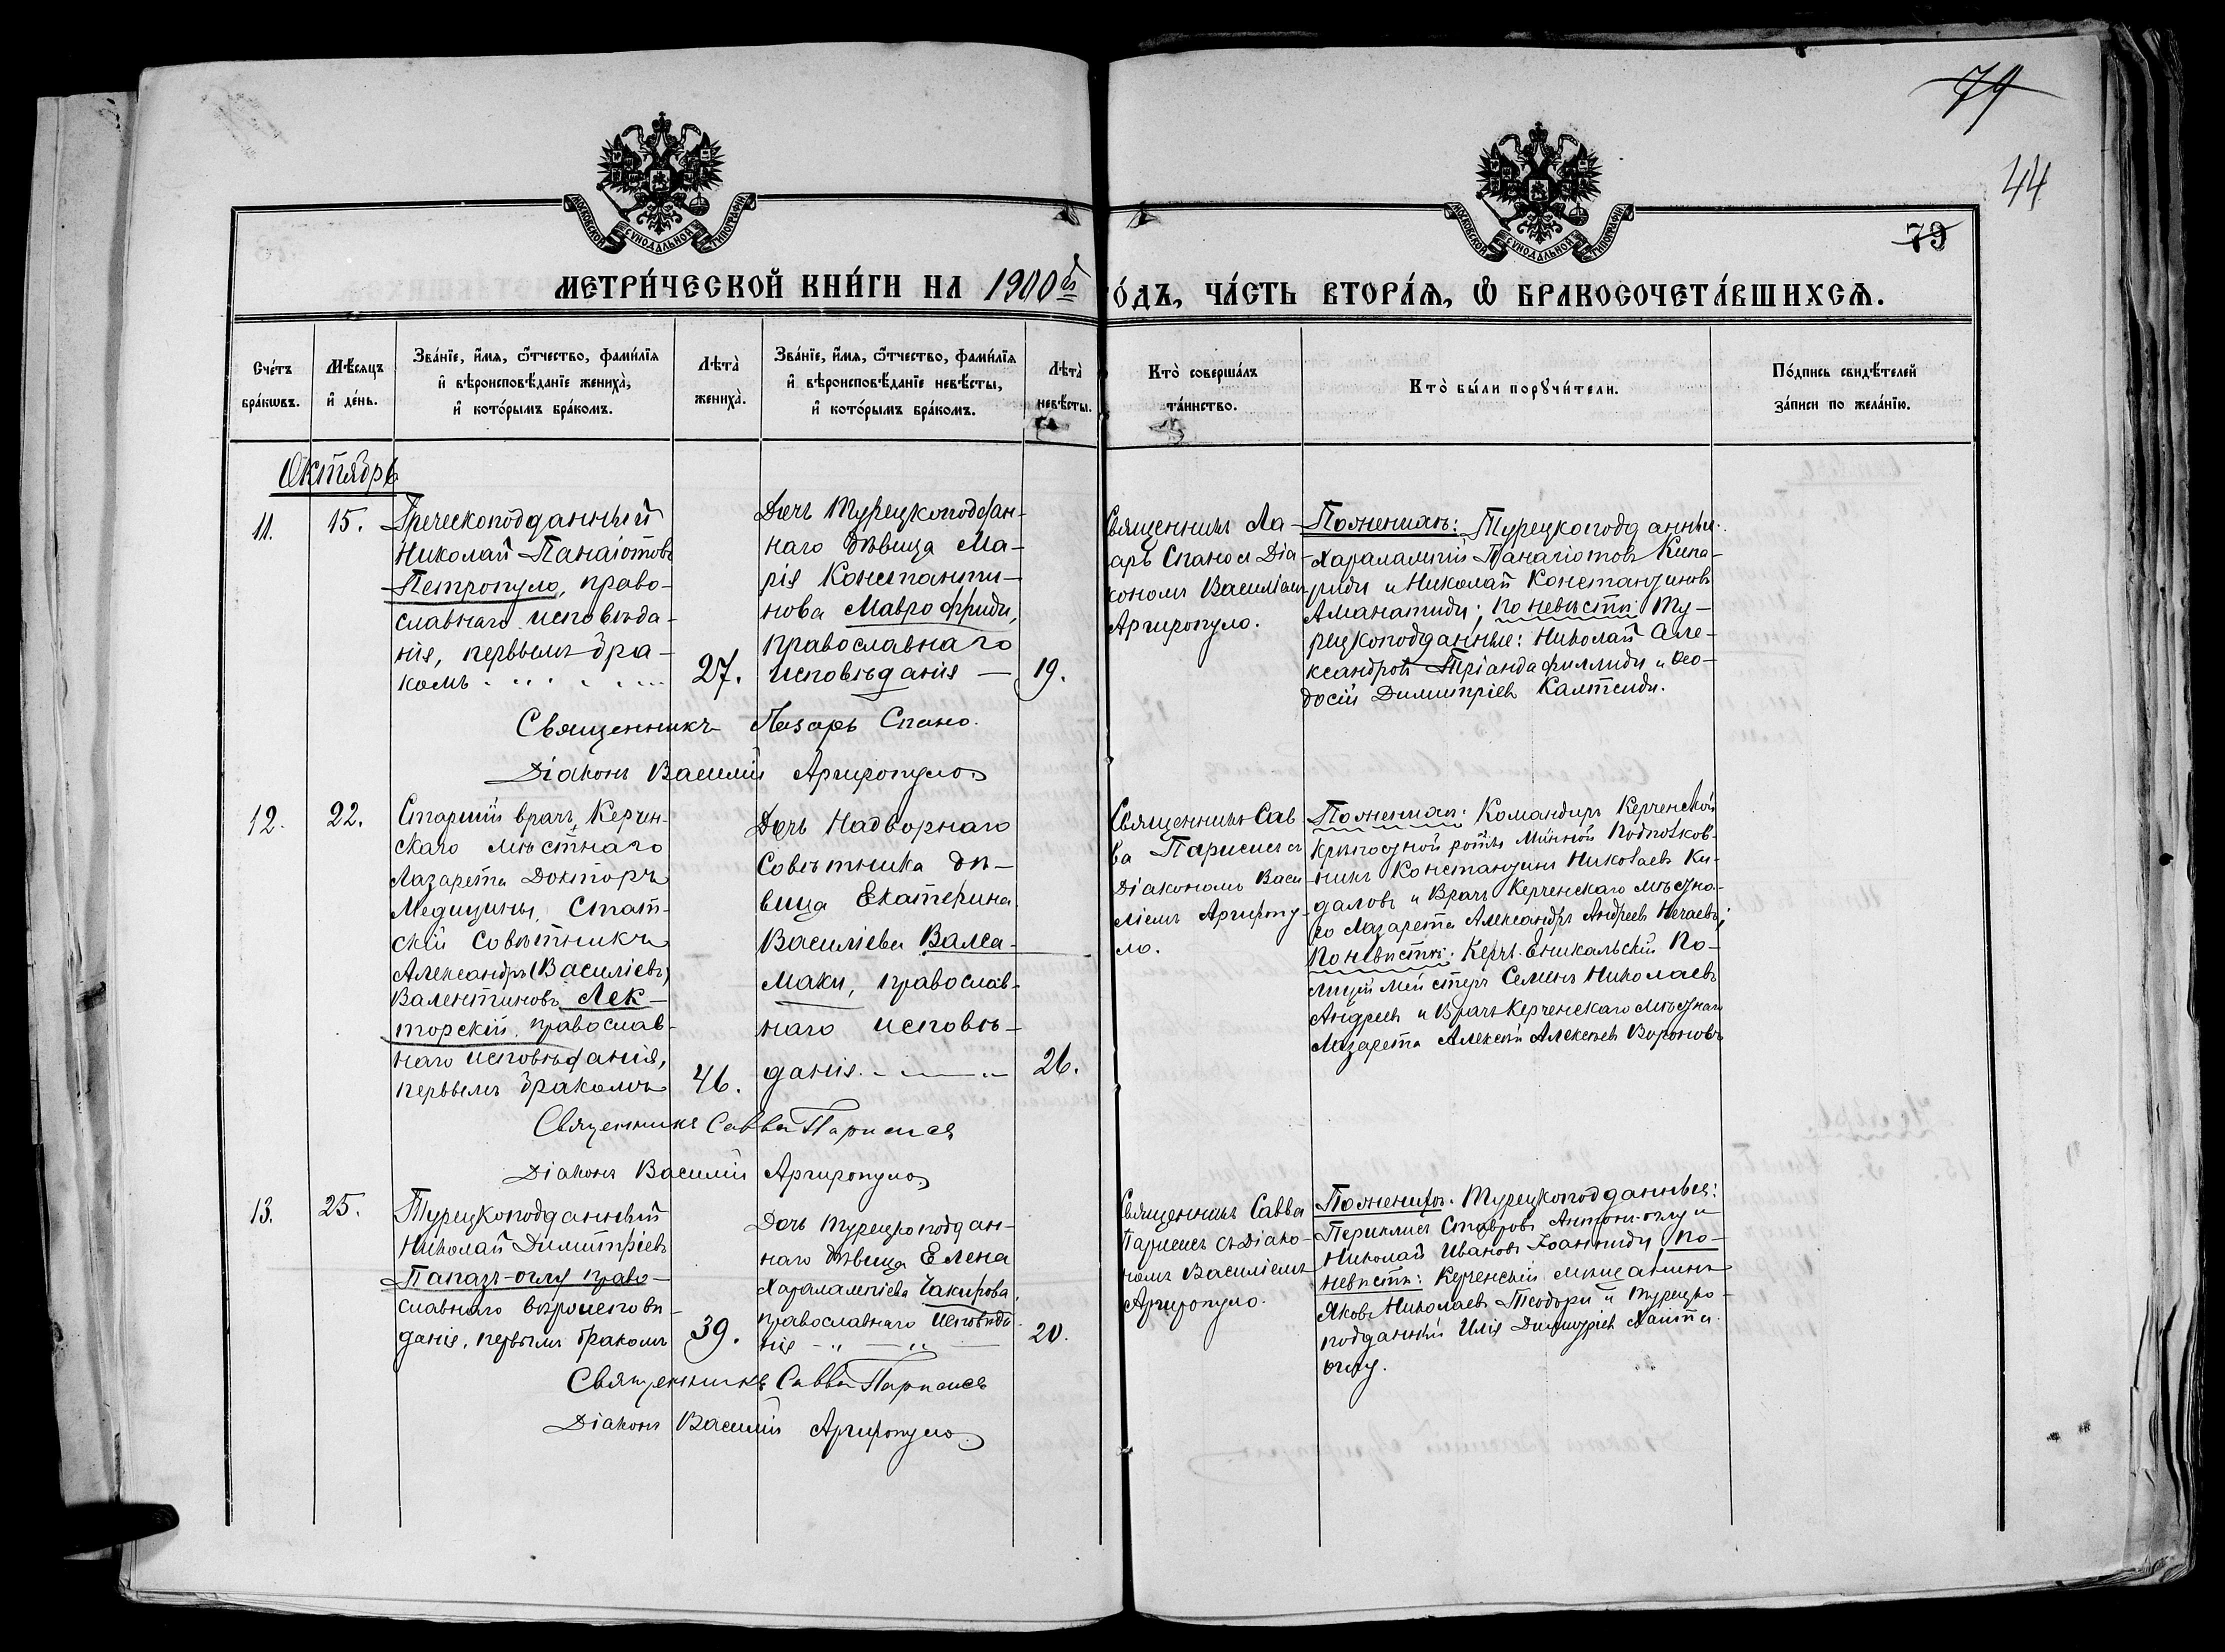 79
44
79
МОСКОВСКОЙ СѴНОДАЛЬНОЙ ТИПОГРАФІИ
МОСКОВСКОЙ СѴНОДАЛЬНОЙ ТИПОГРАФІИ
МЕТРИ́ЧЕСКОЙ КНИ́ГИ НА 1900й
ГО́ДЪ, ЧА́СТЬ ВТОРА́Я, Ѡ БРАКОСОЧЕТА́ВШИХСЯ.
Сче́тъ
бра́кѡвъ.
Мѣ́сяцъ
и҆ де́нь.
Зва́нїе, и҆́мя, ѻ҆́тчество, фами́лїя
и҆ вѣроисповѣ́данїе жениха̀,
и҆ кото́рымъ бра́комъ.
Лѣта̀
жениха̀.
Зва́нїе, и҆́мя, ѻ҆́тчество, фами́лїя
и҆ вѣроисповѣ́данїе невѣ́сты,
и҆ кото́рымъ бра́комъ.
Лѣта̀
невѣ́сты.
Кто̀ соверша́лъ
та́инство.
Кто̀ бы́ли порꙋчи́тели.
По́дпись свидѣ́телей
за́писи по жела́нїю.
Октябрь
11.
15.
Греческоподданный
Николай Панаіотовъ
Петропуло, право-
славнаго исповѣда-
нія, первымъ бра-
комъ
27.
Дочь Турецкоподдан-
наго дѣвица Ма-
рія Константи-
нова Маврофриди,
православнаго
исповѣданія —
19.
Священникъ Ла-
арь Спано и Діа-
кономъ Василіемъ
Аргиропуло.
По женихѣ: Турецкоподданные
Харалампій Панагіотовъ Кипа-
риди и Николай Константиновъ
Аманатиди; по невѣстѣ: Ту-
рецкоподданные: Николай Але-
ксандровъ Тріандафиллиди и Ѳео-
досій Димитріевъ Калтсиди.
Священникъ Лазарь Спано.
Діаконъ Василій Аргиропуло
12.
22.
Старшій врачъ Керчен-
скаго мѣстнаго
Лазарета Докторъ
Медицины, Стат-
скій Совѣтникъ
Александръ (Василіевъ)
Валентиновъ Лек-
торскій, православ-
наго исповѣданія,
первымъ бракомъ
46.
Дочь Надворнаго
Совѣтника дѣ-
вица Екатерина
Василіева Валса-
маки, православ-
наго исповѣ-
данія.
26.
Священникъ Сав
ва Париси съ
Діакономъ Васи-
ліемъ Аргиропу-
ло.
По женихѣ: Командиръ Керченской
крѣпостной роты Минной Подполков-
никъ Константинъ Николаевъ Ки-
даловъ и Врачъ Керченскаго мѣстна-
го Лазарета Александръ Андреевъ Нечаевъ;
По невѣстѣ: Керчь-Еникальскій По-
лицій мейстеръ Семенъ Николаевъ
Андреевъ и Врачъ Керченскаго мѣстнаго
Лазарета Алексѣй Алексѣевъ Вороновъ
Священникъ Савва
Діаконъ Василій Аргиропуло
13.
25.
Турецкоподданный
Николай Димитріевъ
Папазъ-оглу право-
славнаго вѣроисповѣ-
данія, первымъ бракомъ
39.
Дочь турецкоподдан-
наго дѣвица Елена
Харалампіева Чакирова,
православнаго исповѣда-
нія
20.
Священникъ Савва
съ Діако-
номъ Василіемъ
Аргиропуло.
По женихѣ: Турецкоподданные:
Периклисъ Ставровъ Антонъ-оглу и
Николай Ивановъ Іоанниди, по-
невѣстѣ: Керченскій мѣщанинъ
Яковъ Николаевъ Теодори и турецко-
подданный Илія Димитріевъ
оглу.
Священникъ Савва
Діаконъ Василій Аргиропуло